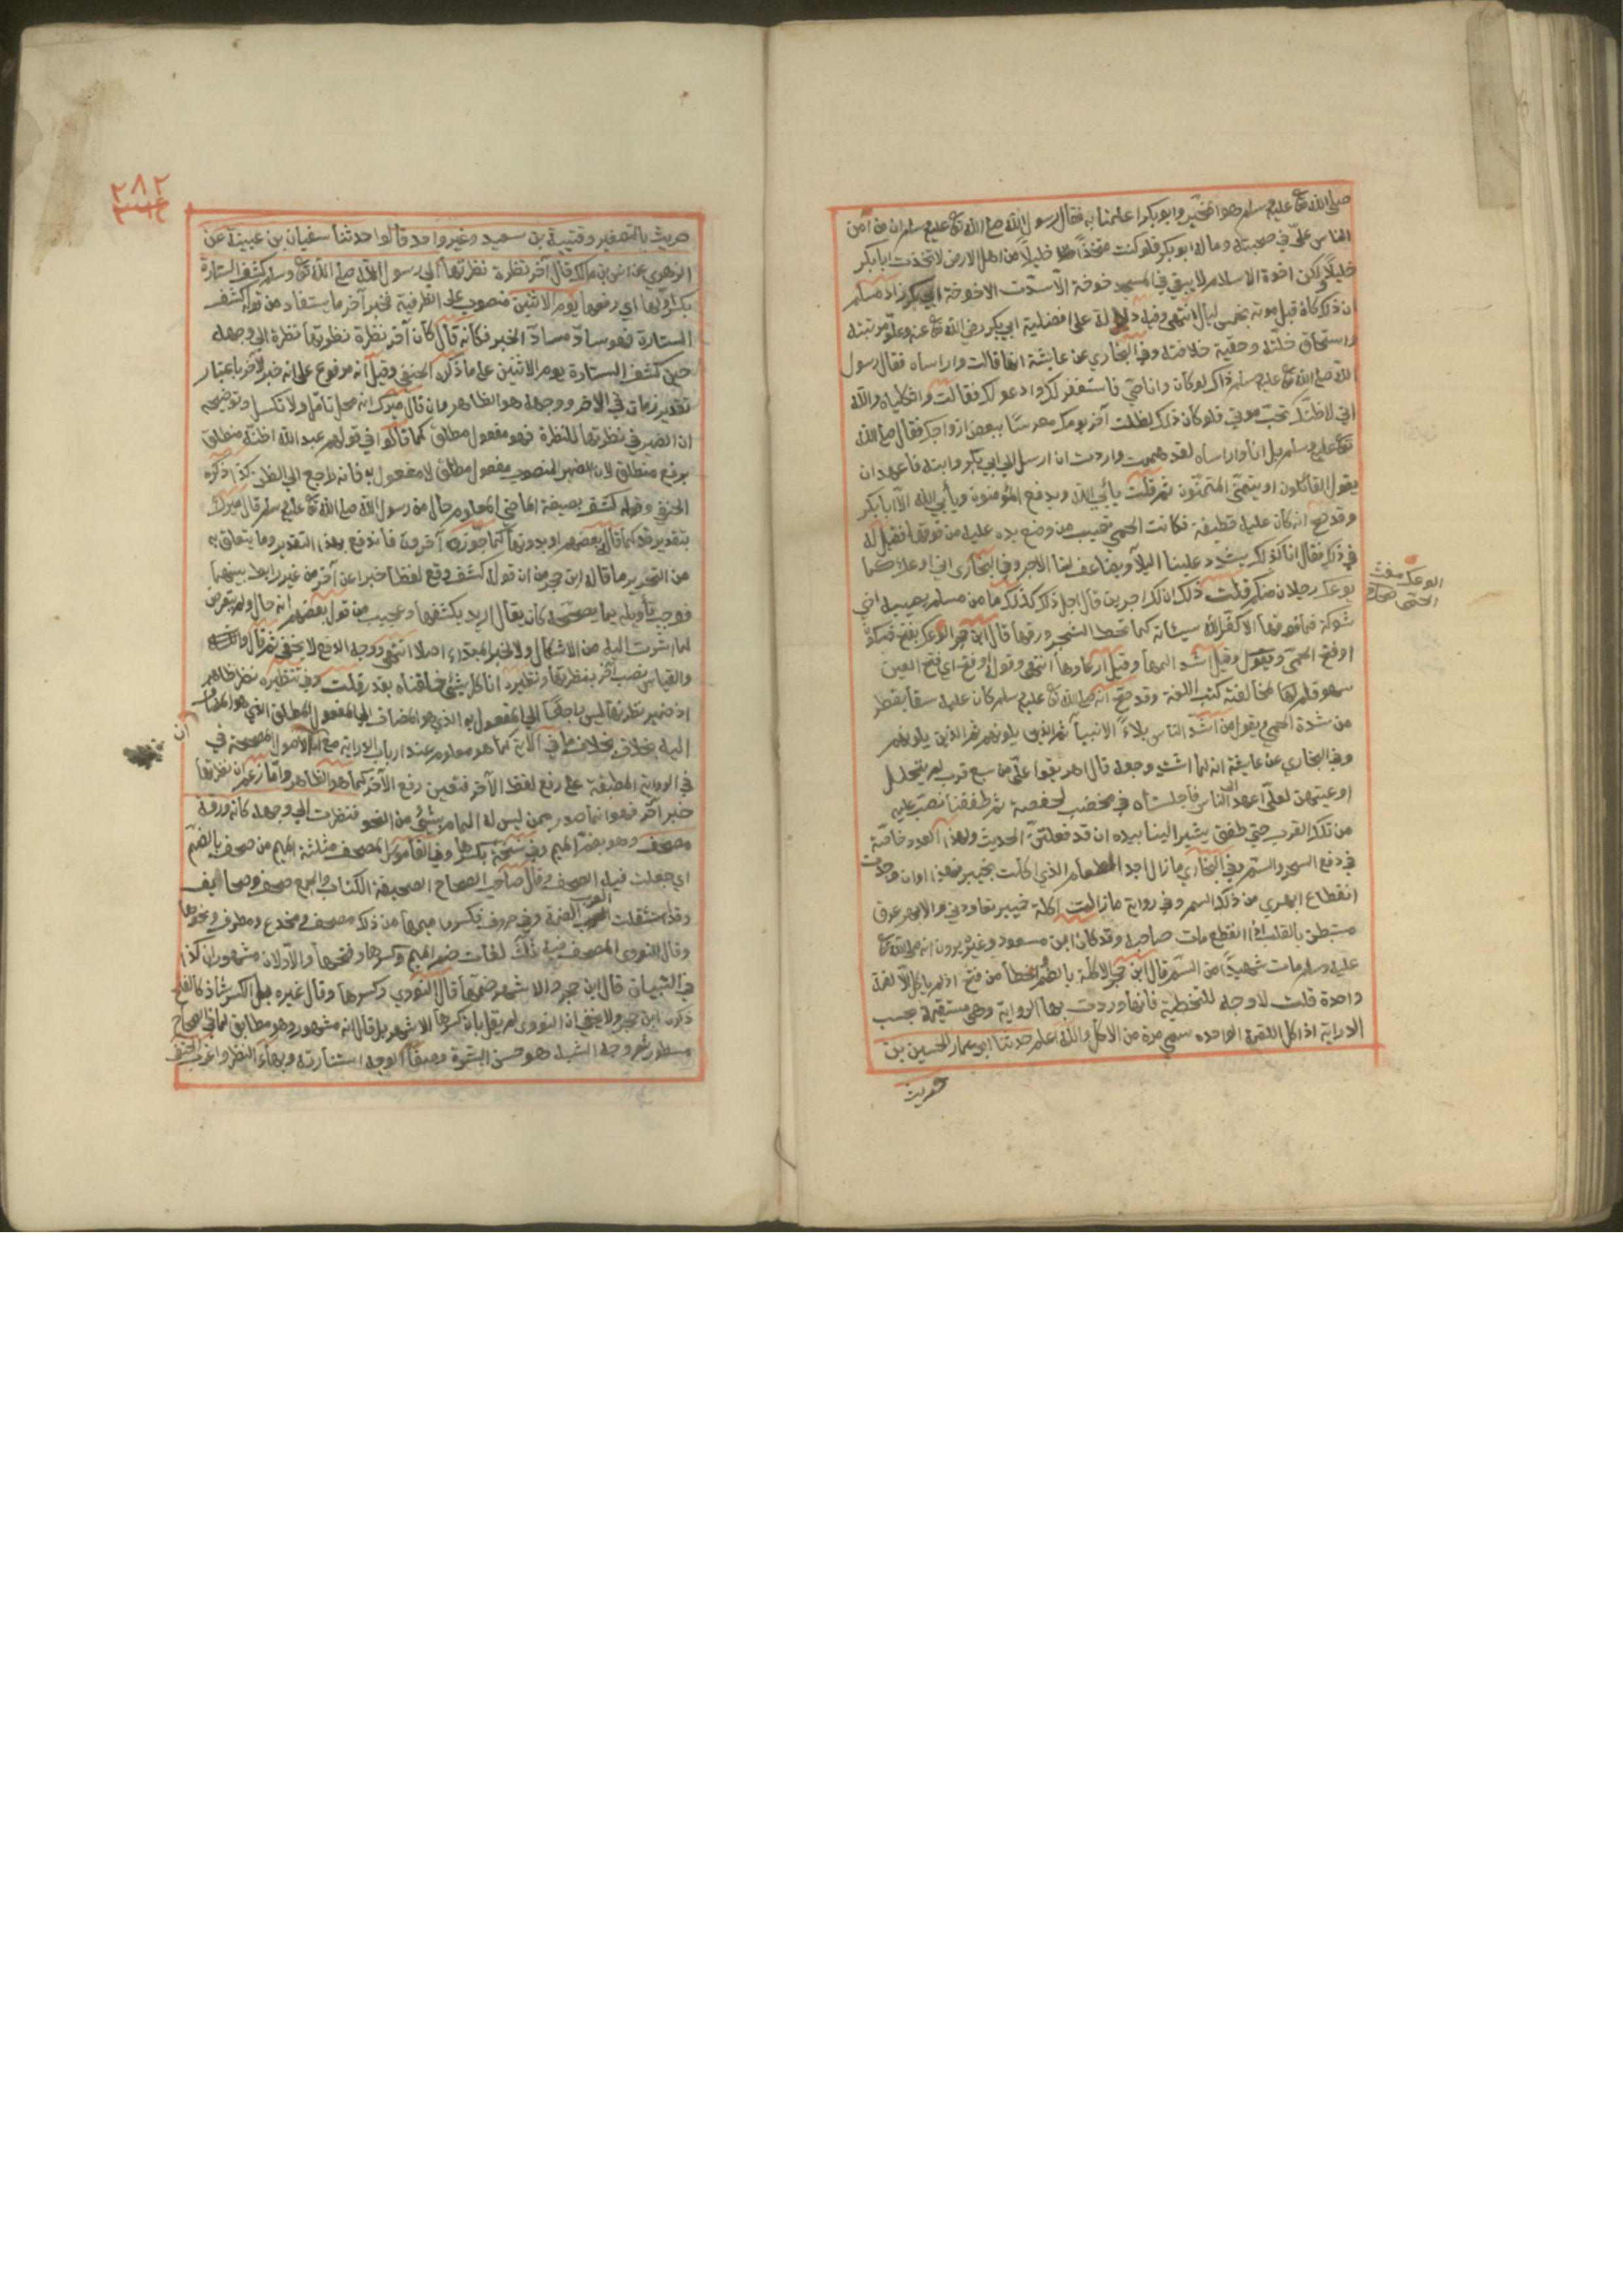 صلى الله تع عليه وسلم هو المخير وابو بكر اعلمنا به فقال رسول الله صلى الله تع عليه وسلم ان من آمن
الناس عليّ في صحبته وماله ابو بكر فلو كنت متخذًا خليلًا من اهل الارض لاتخذت ابا بكر
خليلًا ولكن اخوة الاسلام لا يبقى في المسجد خوخة الّا سدّت الا خوخة ابي بكر زاد مسلم
ان ذلك كان قبل موته بخمس ليال انتهى وفيه دلالة على افضلية ابي بكر رضي الله تع عنه وعلوّ مرتبته
واستحقاق خلّته وحقية خلافته وفي البخاري عن عايشة انها قالت واراساه فقال رسول
الله صلى الله تع عليه وسلم ذاك لو كان وانا حي فاستغفر لك وادعو لك فقالت واثكلياه والله
اني لاظنّك تحبّ موتي فلو كان ذلك لظللت آخر يومك معرسًا ببعض ازواجك فقال صلى الله
تع عليه وسلم بل انا واراساه لقد هممت واردت ان ارسل الى ابي بكر وابنه فاعهد ان
يقول القائلون او يتمنّى المتمنّون ثم قلت يأبى الله ويدفع المؤمنون ويأبى الله الّا ابا بكر
وقد صح انه كان عليه قطيفة فكانت الحمى تصيب من وضع يده عليه من فوقها فقيل له
في ذلك فقال انا كذلك يشدد علينا البلآ ويضاعف لنا الاجر وفي البخاري اني اوعك كما
يوعك رجلان منكم قلت ذلك ان لك اجرين قال اجل ذلك كذلك ما من مسلم يصيبه اذى
شوكة فما فوقها الا كفّر الله سيئاته كما تحط الشجر ورقها قال ابن حجر الوعك بفتح فسكون
او فتح الحمّى ويقول وقيل شدّ المها وقيل ارعادها انتهى وقوله او فتح اي فتح العين
سهو قلم لها لمخالفته كتب اللغة وقد صحّ انه صلى الله تع عليه وسلم كان عليه سقآ يقطر
من شدة الحمى ويقول من اشدّ الناس بلاءً الانبيآ ثم الذين يلونهم ثم الذين يلونهم
وفي البخاري عن عايشة انه لما اشتد وجعه قال اهريقوا علىّ من سبع قرب لم يتحلل
اوعيتهن لعلّى اعهد الى الناس فاجلسناه في مخضب لحفصة ثم طفقنا نصبّ عليه
من تلك القرب حتى طفق يشير الينا بيده ان قد فعلتنّ الحديث ولهذا العدد خاصّة
في دفع السحر والسمّ وفي البخاري ما زال اجد الم الطعام الذي اكلت بخيبر فهذا اوان وجدت
انقطاع ابهري من ذلك السم وفي رواية ما زالت اكلة خيبر تعاودني والابهر عرق
مستبطن بالقلب اذا انقطع مات صاحبه وقد كان ابن مسعود وغيره يرون انه صلى الله تع
عليه وسلم مات شهيدًا من السّم قال ابن حجر الاكلة بالضّم اخطأ من فتح اذ لم ياكل الّا لقمة
واحدة قلت لا وجه للتخطئة فانها وردت بها الرواية وهى مستقيمة بحسب
الدراية اذ اكل اللقمة الواحده سمى مرة من الاكل والله اعلم حدثنا ابو عمار الحسين بن
حريث
الوعك مغث
الحمى صحاح
٢٨٢
حريث بالتصغير وقتيبة بن سعيد وغير واحد قالوا حدثنا سفيان بن عيينة عن
الزهري عن انس بن مالك قال آخر نظرة نظرتها الى رسول الله صلى الله تع عليه وسلم كشف الستارة
بكسر اولها اي رفعها يوم الاثنين منصوب على الظرفية فخبر آخر ما يستفاد من قوله كشف
الستارة فهو سادّ مسادّ الخبر فكانه قال كان آخر نظرة نظرتها نظرة الى وجهه
حين كشف الستارة يوم الاثنين على ما ذكره الحنفي وقيل انه مرفوع على انه خبر لآخر باعتبار
تقدير زمان في الاخر ووجهه هو الظاهر وان قال ميرك انه محل تامّل ولا تكسل وتوضيحه
ان الضمير في نظرتها للنظرة فهو مفعول مطلق كما قالوا في قولهم عبد الله اظنّه منطلق
برفع منطلق لان الضمير المنصوب مفعول مطلق لا مفعول به فانه راجع الى الظن كذا ذكره
الحنفي وقوله كشف بصيغة الماضي المعلوم حال من رسول الله صلى الله تع عليه وسلم قال ميرك
بتقدير قد كما قال بعضهم او بدونها كما جوّزه آخرون فاندفع بهذا التقدير وما يتعلق به
من التحرير ما قاله ابن حجر من ان قوله كشف وقع لفظا خبرا عن آخر من غير رابط بينهما
فوجب تأويله بما يصحّحه كان يقال اريد بكشفها وعجيب من قول بعضهم انه حال ولم يتعرض
لما اشرت اليه من الاشكال ولا لخبر المبتداء اصلا انتهى ووجه الدفع لا يخفى ثم قال
والقياس نصب آخر بنظرتها ونظيره انا كل شئ خلقناه بقدر قلت وفي تنظيره نظر ظاهر
اذ ضمير نظرتها ليس راجعًا الى المفعول به الذي هو المضاف الى المفعول المطلق الذي هو المضاف
اليه بخلاف ما في الاية كما هو معلوم عند ارباب الدراية مع ان الاصول المصححة في
في الرواية المطبقة على رفع لفظ الآخر فتعين رفع الآخر كما هو الظاهر وامّا زعم ان نظرتها
خبر آخر فهو انما صدر ممن ليس له المام بشئ من النحو فنظرت الى وجهه كانه ورقة
مصحف وهو بضمّ الميم وفي نسخة بكسرها وفي القاموس المصحف مثلثة الميم من صحف بالضم
اي جعلت فيه الصحف وقال صاحب الصحاح الصحيفة الكتاب والجمع صحف وصحايف
وقد استثقلت العرب الضمة في حروف فكسروا ميمها من ذلك مصحف ومخدع ومطرف ونحوها
وقال النووى المصحف فيه ثلث لغات ضم الميم وكسرها وفتحها والاوّلان مشهوران كذا
في التبيان قال ابن حجر والاشهر ضمّها قال النووي وكسرها وقال غيره بل الكسر شاذ كالفتح
ذكره ابن حجر ولا يخفى ان النووى لم يقل بان كسرها الاشهر بل قال انه مشهور وهو مطابق لما في الصحاح
مسطور ثم وجه الشبه هو حسن البشرة وصفآ الوجه استنارته وبهآء النظر واغرب الحنفي
ان